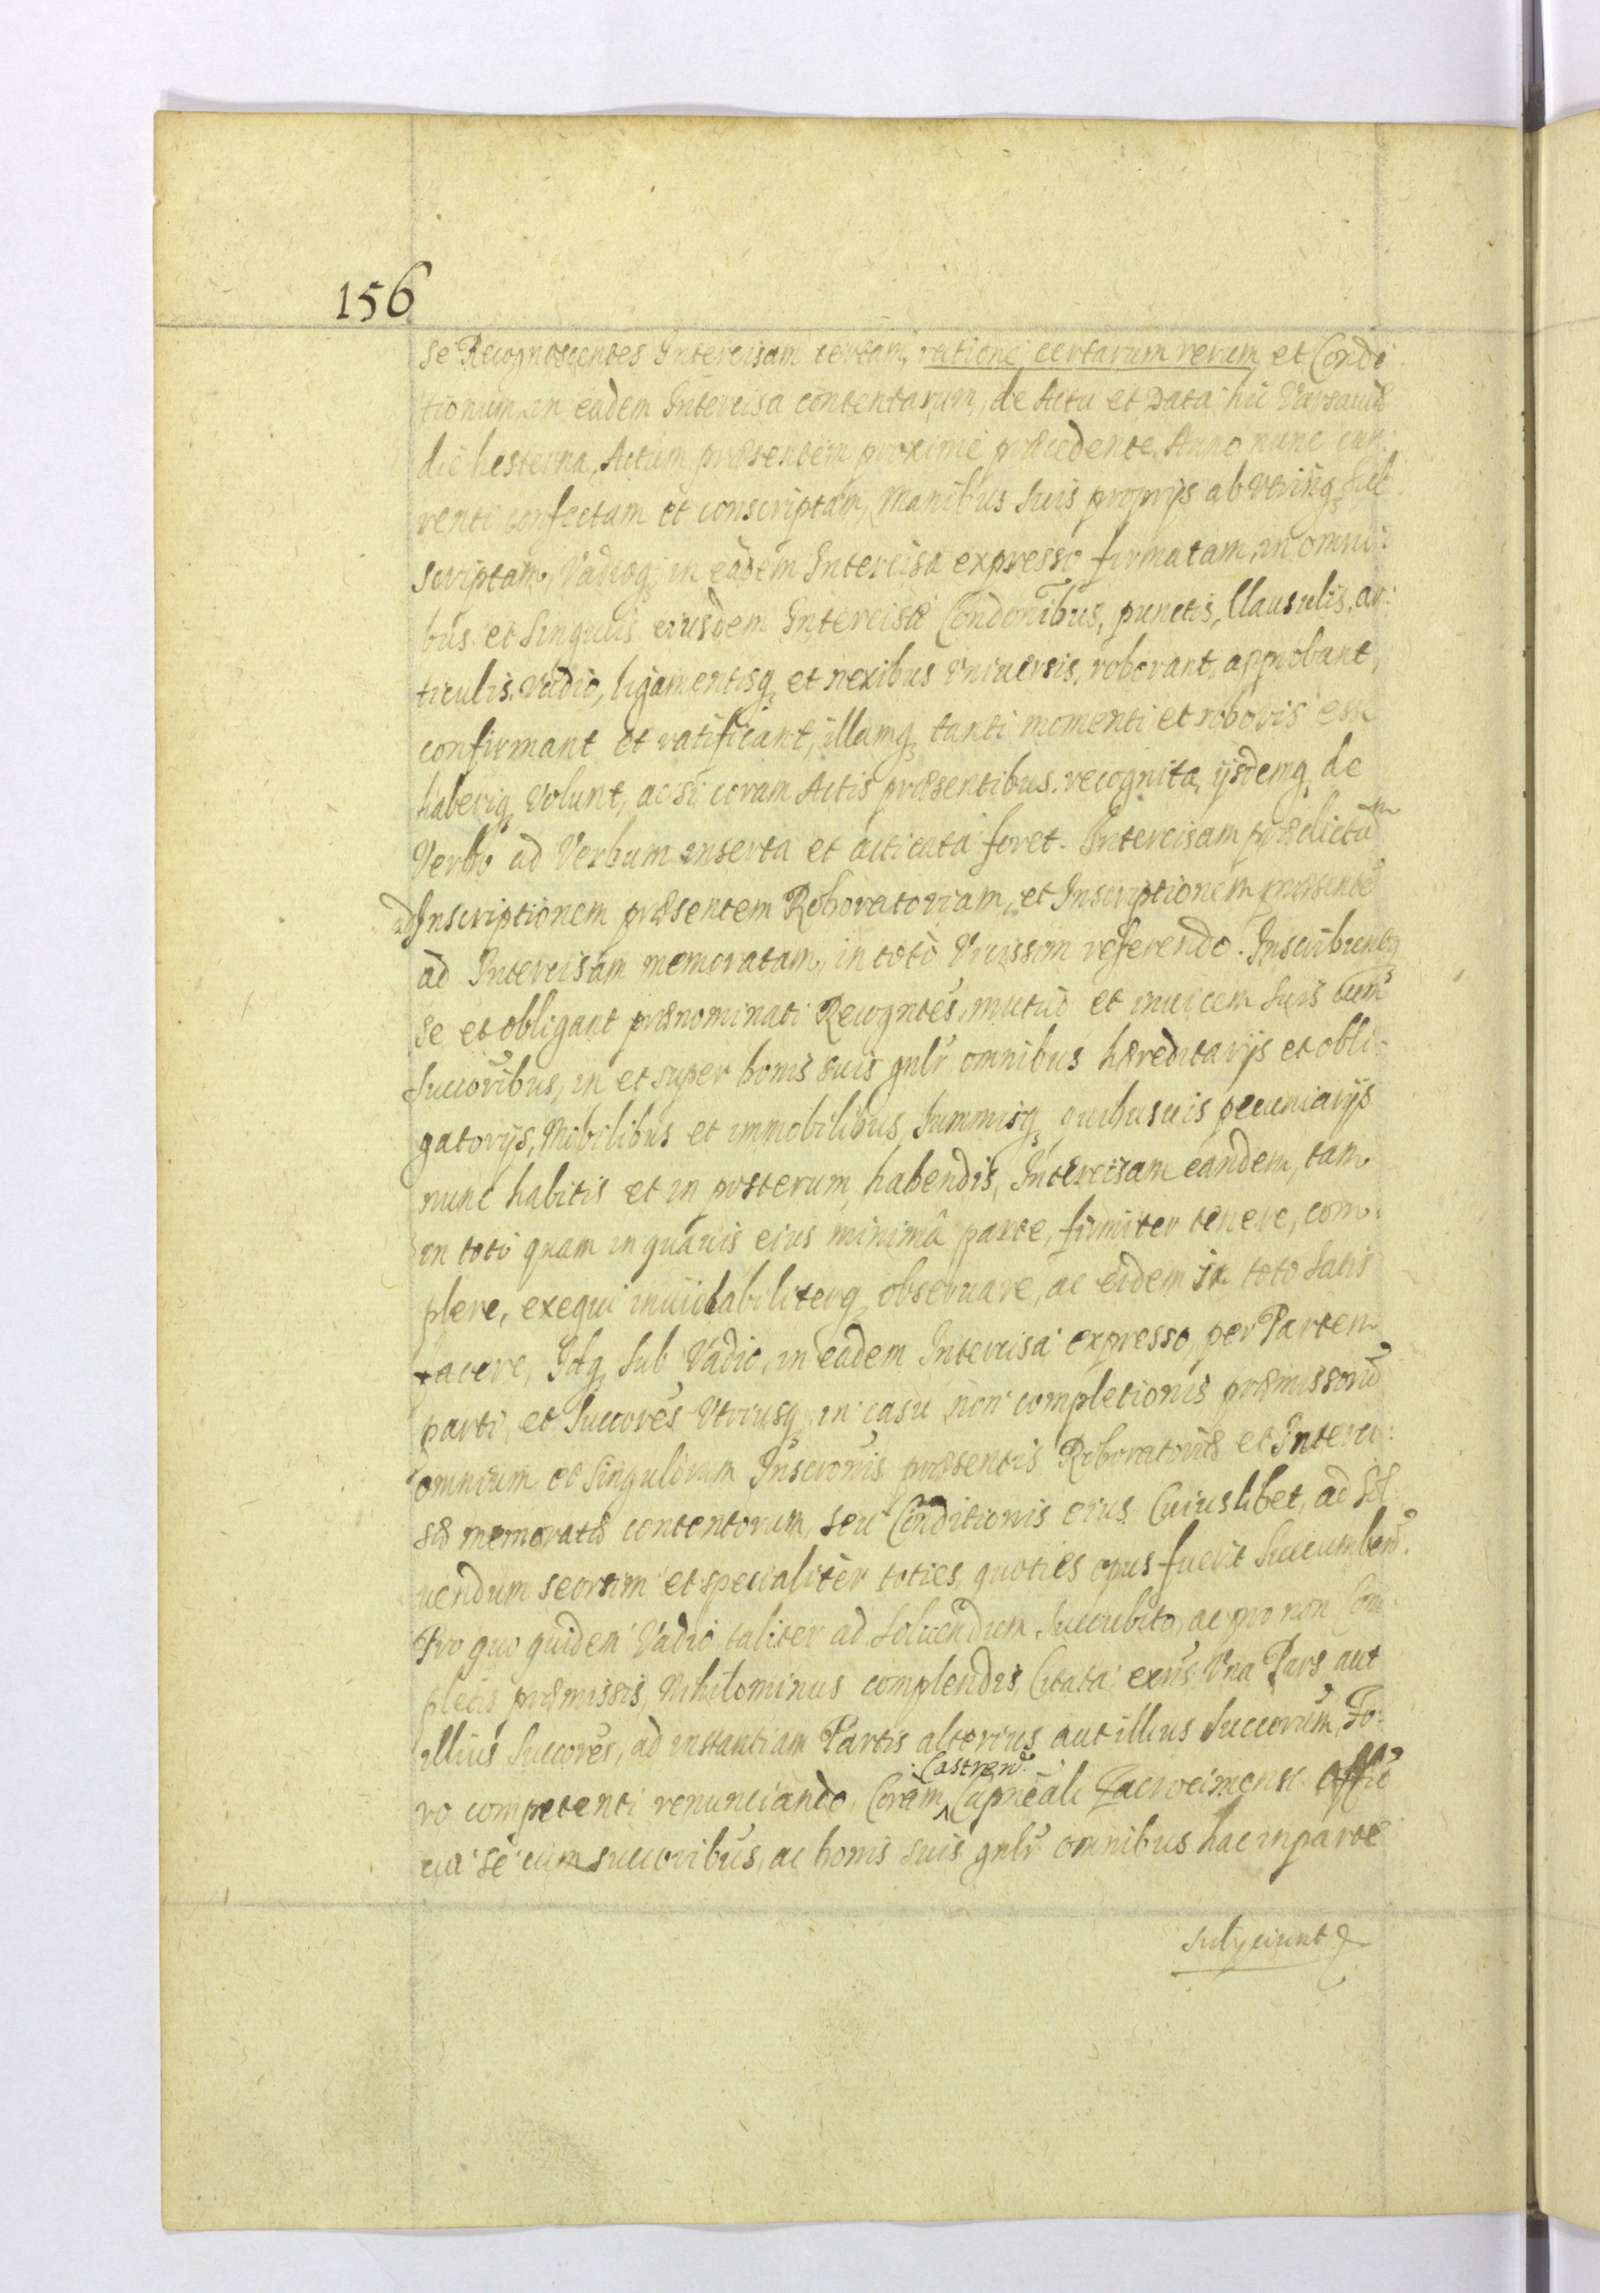 156
se Recognoscentes Intercisam certam, ratione certarum rerum et Condi
tionum in eadem Intercisa contentarum, de Actu et Data hic Varsaviæ
die hesterna, Actum præsentem proxime præcedente, Anno nunc cur:
renti confectam et conscriptam, Manibus suis proprijs ab utrinq Sub
scriptam, Vadioq in eadem Intercisa expresso firmatam, in omni:
bus et singulis eiusdem Intercisæ Condonibus, punctis, Clausulis, ar:
ticulis, Vadio, ligamentisq et nexibus Vniuersis, roborant, approbant,
confirmant et ratificant, illamq tanti momenti et roboris esse
haberiq Volunt, ac si coram Actis præsentibus recognita, ijsdemq de
Verbo ad Verbum inserta et acticata foret. Intercisam prædictam
ad Inscriptionem præsentem Roboratoriam, et Inscriptionem præsente
ad Intercisam memoratam, in toto Vicissim referendo. Inscribuntq
se et obligant prænominati Recogntes, mutuo et inuicem suis cum
succoribus, in et super bonis suis gnlr omnibus hæreditarijs et obli:
gatorijs, Mobilibus et immobilibus, summisq quibusuis pecuniarijs
nunc habitis et in posterum habendis, Intercisam eandem, tam
in toto quam in quauis eius minimâ parte, firmiter tenere, com:
plere, exequi inuiolabiliterq obseruare, ac eidem in toto satis
facere, Idq sub Vadio, in eadem Intercisa expresso, per Partem
parti, et Succores Utriusq in casu non completionis præmissoru
omnium et singulorum Inscronis præsentis Roboratoriæ et Interci:
sæ memoratæ contentorum, seu Conditionis eius Cuiuslibet, ad Sol
uendum seorsim et specialiter toties, quoties opus fuerit succumben.
Pro quo quidem Vadio taliter ad soluendum succubito, ac pro non Com
pletis præmissis, Nihilominus complendis, Citata exns Vna Pars aut
illius Succores, ad instantiam Partis alterius aut illius Succorum, Fo:
Castren
ro competenti renunciando, Coram Capneali Zacroeimensi Offio
cia se cum succoribus, ac bonis suis gnlr omnibus hac in parte
subijciunt